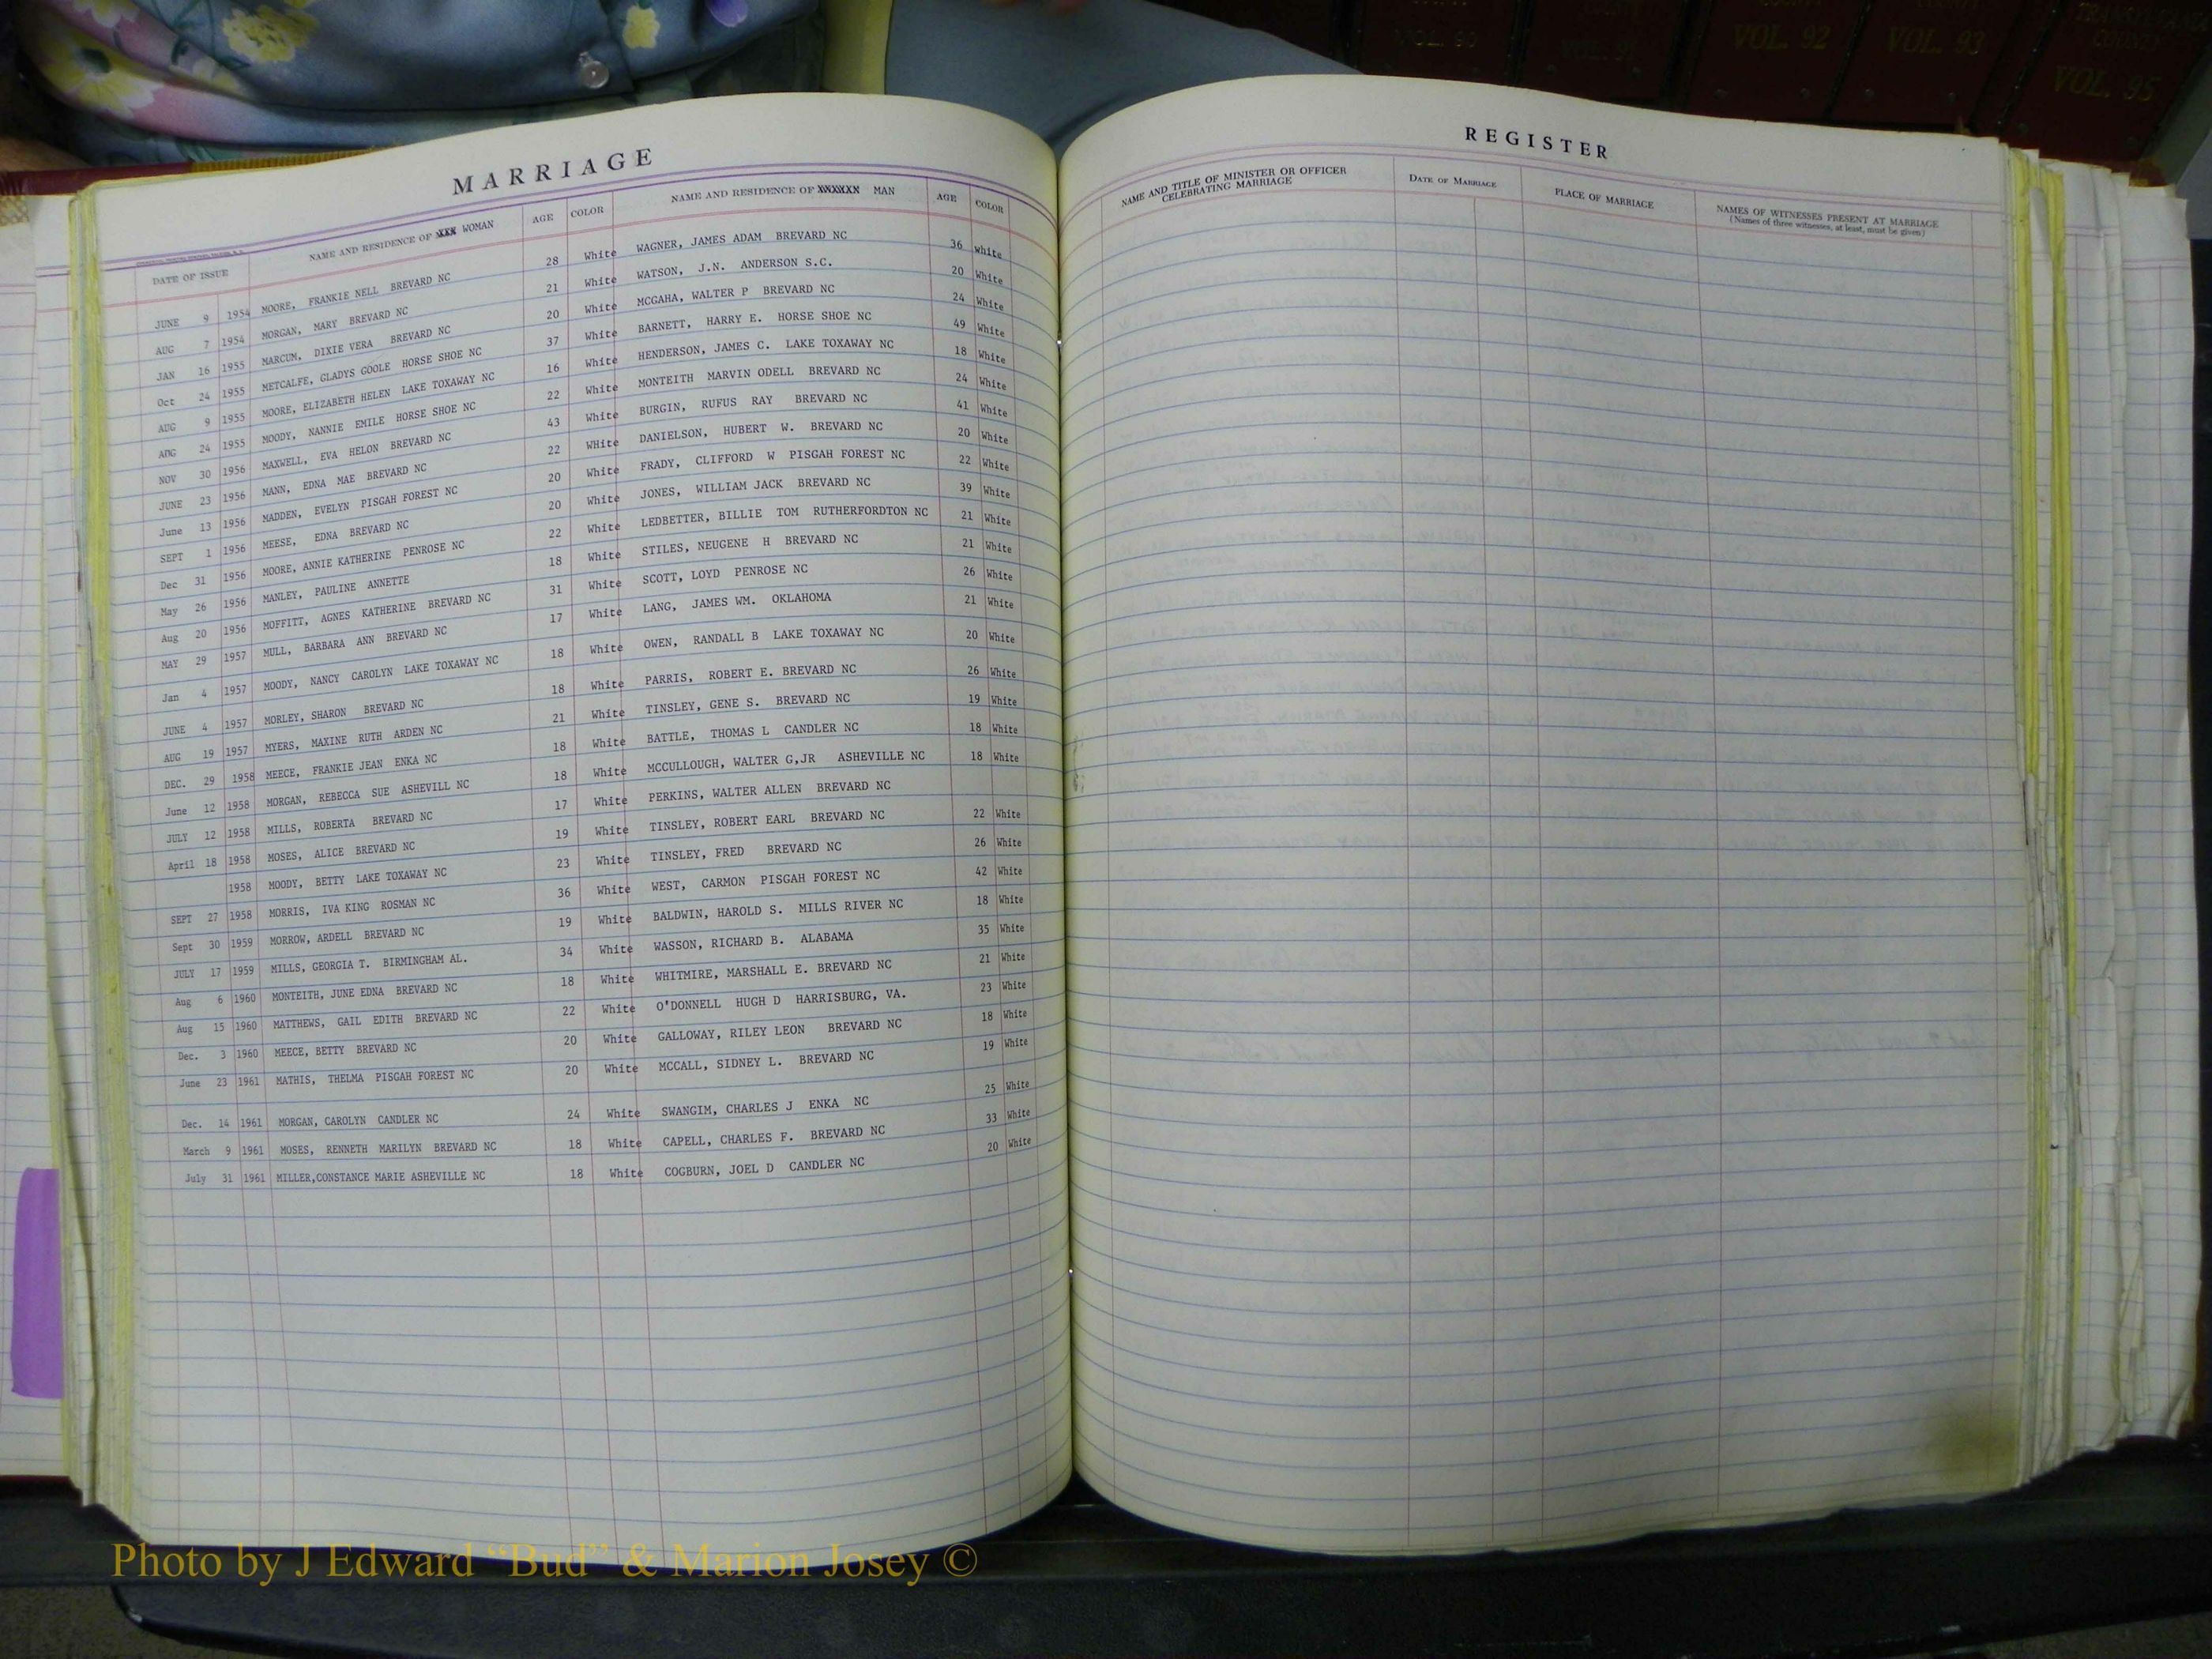 MARRIAGE
DATE OF ISSUE NAME AND RESIDENCE OF XXX WOMAN AGE COLOR NAME AND RESIDENCE OF XXXXXX MAN AGE COLOR
JUNE 9 1954 MOORE, FRANKIE NELL BREVARD NC 28 White WAGNER, JAMES ADAM BREVARD NC 36 white
AUG 7 1954 MORGAN, MARY BREVARD NC 21 White WATSON, J.N. ANDERSON S.C. 20 White
JAN 16 1955 MARCUM, DIXIE VERA BREVARD NC 20 White MCGAHA, WALTER P BREVARD NC 24 White
Oct 24 1955 METCALFE, GLADYS GOOLE HORSE SHOE NC 37 White BARNETT, HARRY E. HORSE SHOE NC 49 White
AUG 9 1955 MOORE, ELIZABETH HELEN LAKE TOXAWAY NC 16 White HENDERSON, JAMES C. LAKE TOXAWAY NC 18 White
AUG 24 1955 MOODY, NANNIE EMILE HORSE SHOE NC 22 White MONTEITH MARVIN ODELL BREVARD NC 24 White
NOV 30 1956 MAXWELL, EVA HELON BREVARD NC 43 White BURGIN, RUFUS RAY BREVARD NC 41 White
JUNE 23 1956 MANN, EDNA MAE BREVARD NC 22 WHite DANIELSON, HUBERT W. BREVARD NC 20 White
June 13 1956 MADDEN, EVELYN PISGAH FOREST NC 20 White FRADY, CLIFFORD W PISGAH FOREST NC 22 White
SEPT 1 1956 MEESE, EDNA BREVARD NC 20 White JONES, WILLIAM JACK BREVARD NC 39 White
Dec 31 1956 MOORE, ANNIE KATHERINE PENROSE NC 22 White LEDBETTER, BILLIE TOM RUTHERFORDTON NC 21 White
May 26 1956 MANLEY, PAULINE ANNETTE 18 White STILES, NEUGENE H BREVARD NC 21 White
Aug 20 1956 MOFFITT, AGNES KATHERINE BREVARD NC 31 White SCOTT, LOYD PENROSE NC 26 White
MAY 29 1957 MULL, BARBARA ANN BREVARD NC 17 White LANG, JAMES WM. OKLAHOMA 21 White
Jan 4 1957 MOODY, NANCY CAROLYN LAKE TOXAWAY NC 18 White OWEN, RANDALL B LAKE TOXAWAY NC 20 White
JUNE 4 1957 MORLEY, SHARON BREVARD NC 18 White PARRIS, ROBERT E. BREVARD NC 26 White
AUG 19 1957 MYERS, MAXINE RUTH ARDEN NC 21 White TINSLEY, GENE S. BREVARD NC 19 White
DEC. 29 1958 MEECE, FRANKIE JEAN ENKA NC 18 White BATTLE, THOMAS L CANDLER NC 18 White
June 12 1958 MORGAN, REBECCA SUE ASHEVILL NC 18 White MCCULLOUGH, WALTER G,JR ASHEVILLE NC 18 White
JULY 12 1958 MILLS, ROBERTA BREVARD NC 17 White PERKINS, WALTER ALLEN BREVARD NC
April 18 1958 MOSES, ALICE BREVARD NC 19 White TINSLEY, ROBERT EARL BREVARD NC 22 White
1958 MOODY, BETTY LAKE TOXAWAY NC 23 White TINSLEY, FRED BREVARD NC 26 White
SEPT 27 1958 MORRIS, IVA KING ROSMAN NC 36 White WEST, CARMON PISGAH FOREST NC 42 White
Sept 30 1959 MORROW, ARDELL BREVARD NC 19 White BALDWIN, HAROLD S. MILLS RIVER NC 18 White
JULY 17 1959 MILLS, GEORGIA T. BIRMINGHAM AL. 34 White WASSON, RICHARD B. ALABAMA 35 White
Aug 6 1960 MONTEITH, JUNE EDNA BREVARD NC 18 White WHITMIRE, MARSHALL E. BREVARD NC 21 White
Aug 15 1960 MATTHEWS, GAIL EDITH BREVARD NC 22 White O'DONNELL HUGH D HARRISBURG, VA. 23 White
Dec. 3 1960 MEECE, BETTY BREVARD NC 20 White GALLOWAY, RILEY LEON BREVARD NC 18 White
June 23 1961 MATHIS, THELMA PISGAH FOREST NC 20 White MCCALL, SIDNEY L. BREVARD NC 19 White
Dec. 14 1961 MORGAN, CAROLYN CANDLER NC 24 White SWANGIM, CHARLES J ENKA NC 25 White
March 9 1961 MOSES, RENNETH MARILYN BREVARD NC 18 White CAPELL, CHARLES F. BREVARD NC 33 White
July 31 1961 MILLER,CONSTANCE MARIE ASHEVILLE NC 18 White COGBURN, JOEL D CANDLER NC 20 White
REGISTER
NAME AND TITLE OF MINISTER OR OFFICER CELEBRATING MARRIAGE DATE OF MARRIAGE PLACE OF MARRIAGE NAMES OF WITNESSES PRESENT AT MARRIAGE
(Names of three witnesses, at least, must be given)
VOL. 92
VOL. 93
COUNTY
VOL. 95
Photo by J Edward “Bud” & Marion Josey ©